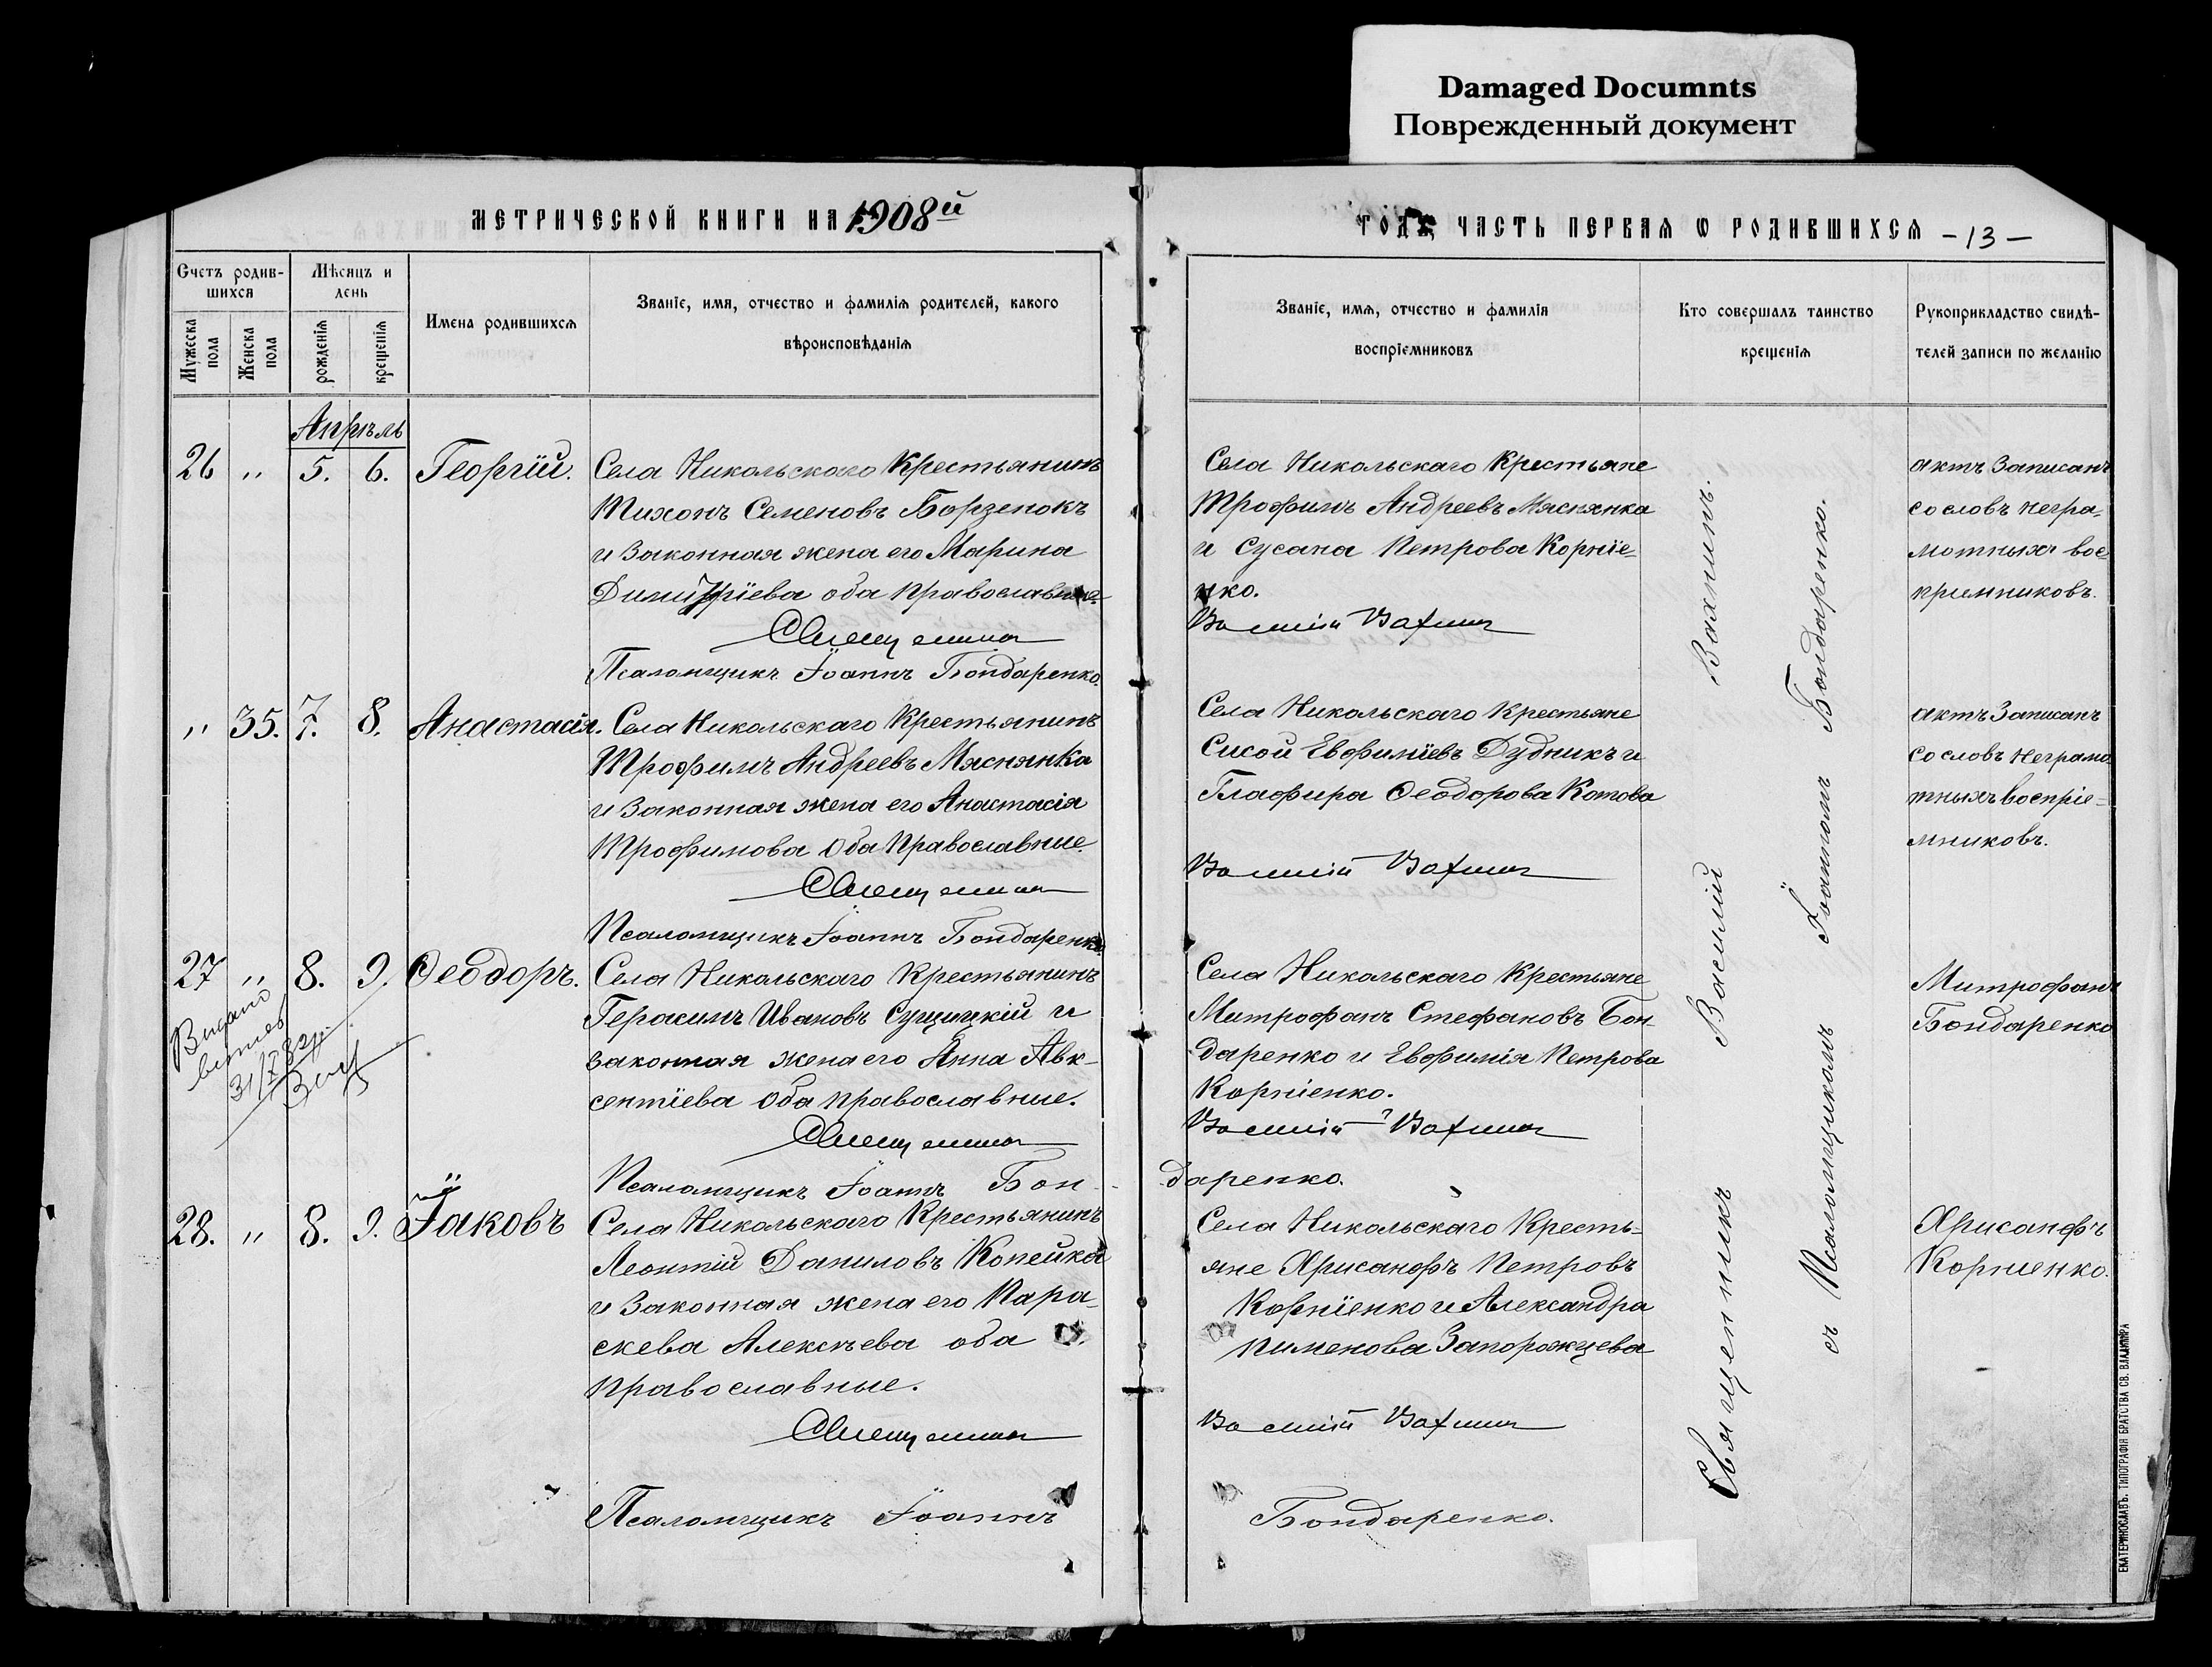 Damaged Documnts
Поврежденный документ
МЕТРИЧЕСКОЙ КНИГИ НА 1908й
ГОДЪ, ЧАСТЬ ПЕРВАЯ Ѡ РОДИВШИХСЯ -13-
Счетъ родив-
шихся
Мѣсяцъ и
день
Мужеска
пола
Женска
пола
рожденія
крещенія
Имена родившихся
Званіе, имя, отчество и фамилія родителей, какого
вѣроисповѣданія
Званіе, имя, отчество и фамилія
воспріемниковъ
Кто совершалъ таинство
крещенія
Рукоприкладство свидѣ-
телей записи по желанію
Апрѣль
26 " 5. 6. Георгій.
Села Никольскаго Крестьянинъ
Тихонъ Семеновъ Борзенокъ
и законная жена его Марина
Димитріева оба православные
Священникъ
Псаломщикъ Іоаннъ Бондаренко.
Села Никольскаго Крестьяне
Трофимъ Андреевъ Мяснянка
и Сусана Петрова Корніе-
нко.
Василій Вахнинъ
актъ записанъ
со словъ негра-
мотныхъ вос-
пріемниковъ.
" 35. 7. 8. Анастасія.
Села Никольскаго Крестьянинъ
Трофимъ Андреевъ Мяснянка
и законная жена его Анастасія
Трофимова оба Православные.
Священникъ
Псаломщикъ Іоаннъ Бондаренко
Села Никольскаго Крестьяне
Сисой Евфиміевъ Дудникъ и
Глафира Ѳеодорова Котова
Василій Вахнинъ
актъ записанъ
со словъ неграмо-
тныхъ воспріе-
мниковъ.
27 " 8. 9. Ѳеодоръ.
Села Никольскаго Крестьянинъ
Герасимъ Ивановъ Сущицкій и
законная жена его Анна Авк-
сентіева оба православные.
Священникъ
Псаломщикъ Іоаннъ Бон-
Села Никольскаго Крестьяне
Митрофанъ Стефановъ Бон-
даренко и Евфимія Петрова
Корніенко.
Василій Вахнинъ
даренко.
Митрофанъ
Бондаренко
28. " 8. 9. Іаковъ
Села Никольскаго Крестьянинъ
Леонтій Даниловъ Копейка
и законная жена его Пара-
скева Алексѣева оба
православные.
Священникъ
Псаломщикъ Іоаннъ
Села Никольскаго Кресть-
яне Хрисанфъ Петровъ
Корніенко и Александра
Пименова Запорожцева
Василій Вахнинъ
Бондаренко.
Хрисанфъ
Корниенко.
Священникъ Василій Вахнинъ.
съ Псаломщикомъ Іоанномъ Бондаренко.
Видано
ЕКАТЕРИНОСЛАВЪ. ТИПОГРАФІЯ БРАТСТВА СВ. ВЛАДИМІРА